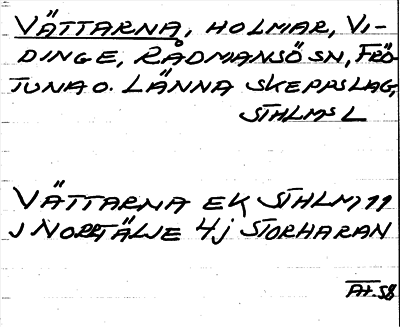 VÄTTARNA, HOLMAR, VI-
DINGE, RÅDMANSÖ SN, FRÖ-
TUNA O. LÄNNA SKEPPSLAG,
STHLMS L
VÄTTARNA EK STHLM 99
J NORRTÄLJE 4j STORHARAN